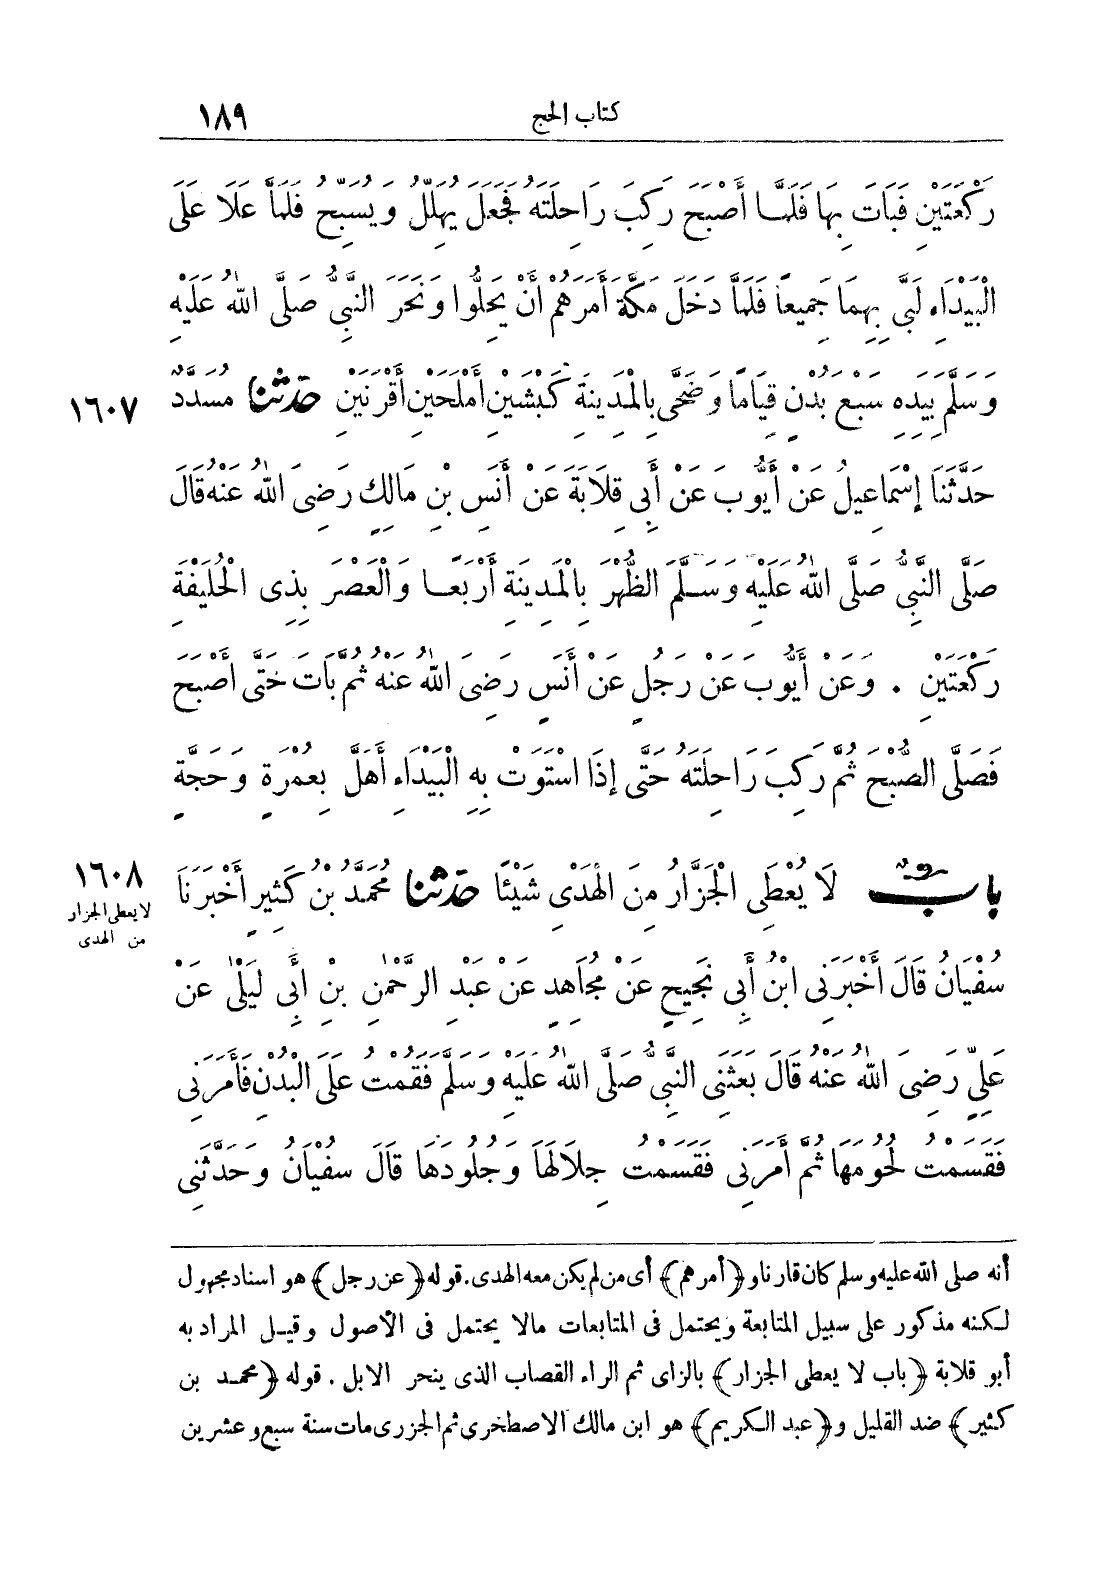 كتاب الحج ١٨٩
رَكْعَتَيْنِ فَبَاتَ بِهَا فَلَمَّا أَصْبَحَ رَكِبَ رَاحِلَتَهُ فَجَعَلَ يُهَلِّلُ وَيُسَبِّحُ فَلَمَّا عَلَا عَلَى
الْبَيْدَاءِ لَبَّى بِهِمَا جَمِيعًا فَلَمَّا دَخَلَ مَكَّةَ أَمَرَهُمْ أَنْ يَحِلُّوا وَنَحَرَ النَّبِيُّ صَلَّى اللهُ عَلَيْهِ
وَسَلَّمَ بِيَدِهِ سَبْعَ بُدْنٍ قِيَامًا وَضَحَّى بِالْمَدِينَةِ كَبْشَيْنِ أَمْلَحَيْنِ أَقْرَنَيْنِ حدثنا مُسَدَّدٌ
١٦٠٧
حَدَّثَنَا إِسْمَاعِيلُ عَنْ أَيُّوبَ عَنْ أَبِي قِلَابَةَ عَنْ أَنَسِ بْنِ مَالِكٍ رَضِىَ اللهُ عَنْهُ قَالَ
صَلَّى النَّبِيُّ صَلَّى اللهُ عَلَيْهِ وَسَلَّمَ الظُّهْرَ بِالْمَدِينَةِ أَرْبَعًا وَالْعَصْرَ بِذِى الْحُلَيْفَةِ
رَكْعَتَيْنِ . وَعَنْ أَيُّوبَ عَنْ رَجُلٍ عَنْ أَنَسٍ رَضِىَ اللهُ عَنْهُ ثُمَّ بَاتَ حَتَّى أَصْبَحَ
فَصَلَّى الصُّبْحَ ثُمَّ رَكِبَ رَاحِلَتَهُ حَتَّى إِذَا اسْتَوَتْ بِهِ الْبَيْدَاءَ أَهَلَّ بِعُمْرَةٍ وَحَجَّةٍ
بابٌ لَا يُعْطَى الْجَزَّارُ مِنَ الْهَدْىِ شَيْئًا حدثنا مُحَمَّدُ بْنُ كَثِيرٍ أَخْبَرَنَا
١٦٠٨
لا يعطى الجزار
من الهدى
سُفْيَانُ قَالَ أَخْبَرَنِى ابْنُ أَبِى نَجِيحٍ عَنْ مُجَاهِدٍ عَنْ عَبْدِ الرَّحْمٰنِ بْنِ أَبِى لَيْلَى عَنْ
عَلِىٍّ رَضِىَ اللهُ عَنْهُ قَالَ بَعَثَنِى النَّبِىُّ صَلَّى اللهُ عَلَيْهِ وَسَلَّمَ فَقُمْتُ عَلَى الْبُدْنِ فَأَمَرَنِى
فَقَسَمْتُ لُحُومَهَا ثُمَّ أَمَرَنِى فَقَسَمْتُ جِلَالَهَا وَجُلُودَهَا قَالَ سُفْيَانُ وَحَدَّثَنِى
أنه صلى الله عليه وسلم كان قارنا و﴿أمرهم﴾ أى من لم يكن معه الهدى. قوله ﴿عن رجل﴾ هو اسناد مجهول
لكنه مذكور على سبيل المتابعة ويحتمل فى المتابعات مالا يحتمل فى الأصول وقيل المراد به
أبو قلابة ﴿باب لا يعطى الجزار﴾ بالزاى ثم الراء القصاب الذى ينحر الابل. قوله ﴿محمد بن
كثير﴾ ضد القليل و﴿عبد الكريم﴾ هو ابن مالك الاصطخرى ثم الجزرى مات سنة سبع وعشرين